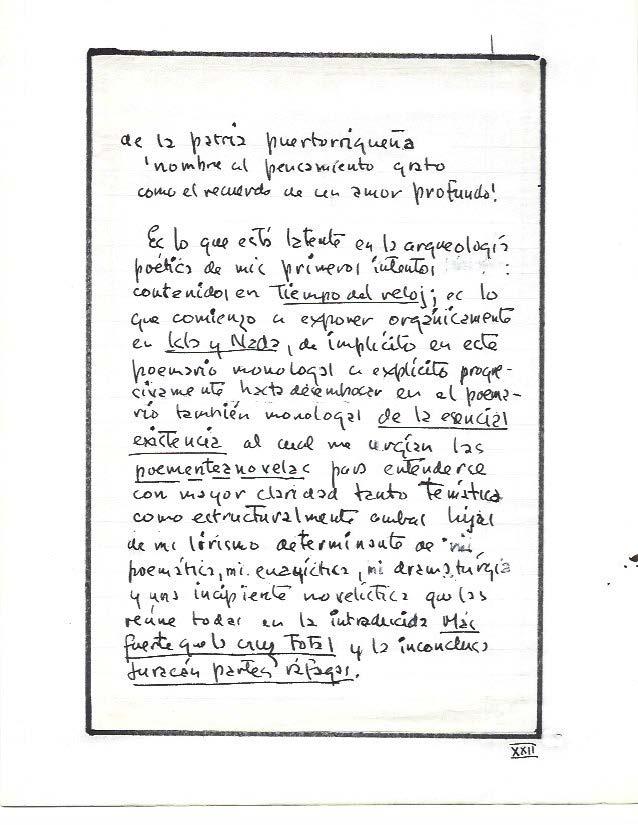 de la patria puertorriqueña
'nombre al pensamiento grato
como el recuerdo de un amor profundo'.
Es lo que está latente en la arqueología
poética de mis primeros intentos
contenidos en Tiempo del reloj; es lo
que comienzo a exponer orgánicamente
en Isla y Nada, de implícito en este
poemario monologal a explícito progre-
sivamente hasta desembocar en el poema-
rio también monologal de la esencial
existencia al cual me urgían las
poementeanovelas para entenderse
con mayor claridad tanto temática
como estructuralmente ambas hijas
de mi lirismo determinante de mi
poemática, mi ensayística, mi dramaturgia
y una incipiente novelística que las
reúne todas en la introducida Más
fuerte que la cruz Total y la inconclusa
huracán partes ráfagas.
XXII